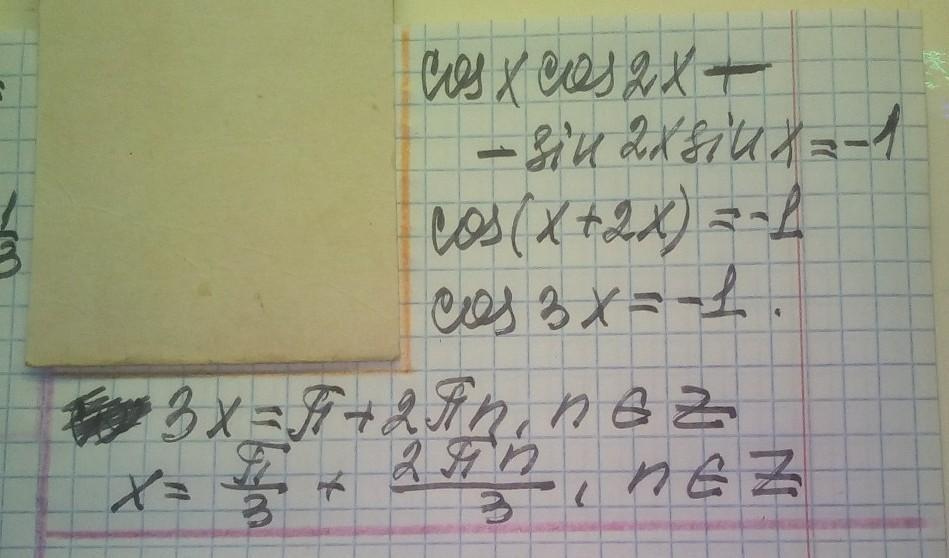 cos x cos 2x –
– sin 2x sin x = -1
cos(x+2x) = -1
cos 3x = -1.
1
3
3x = π + 2πn, n ∈ Z
x = π/3 + 2πn/3, n ∈ Z